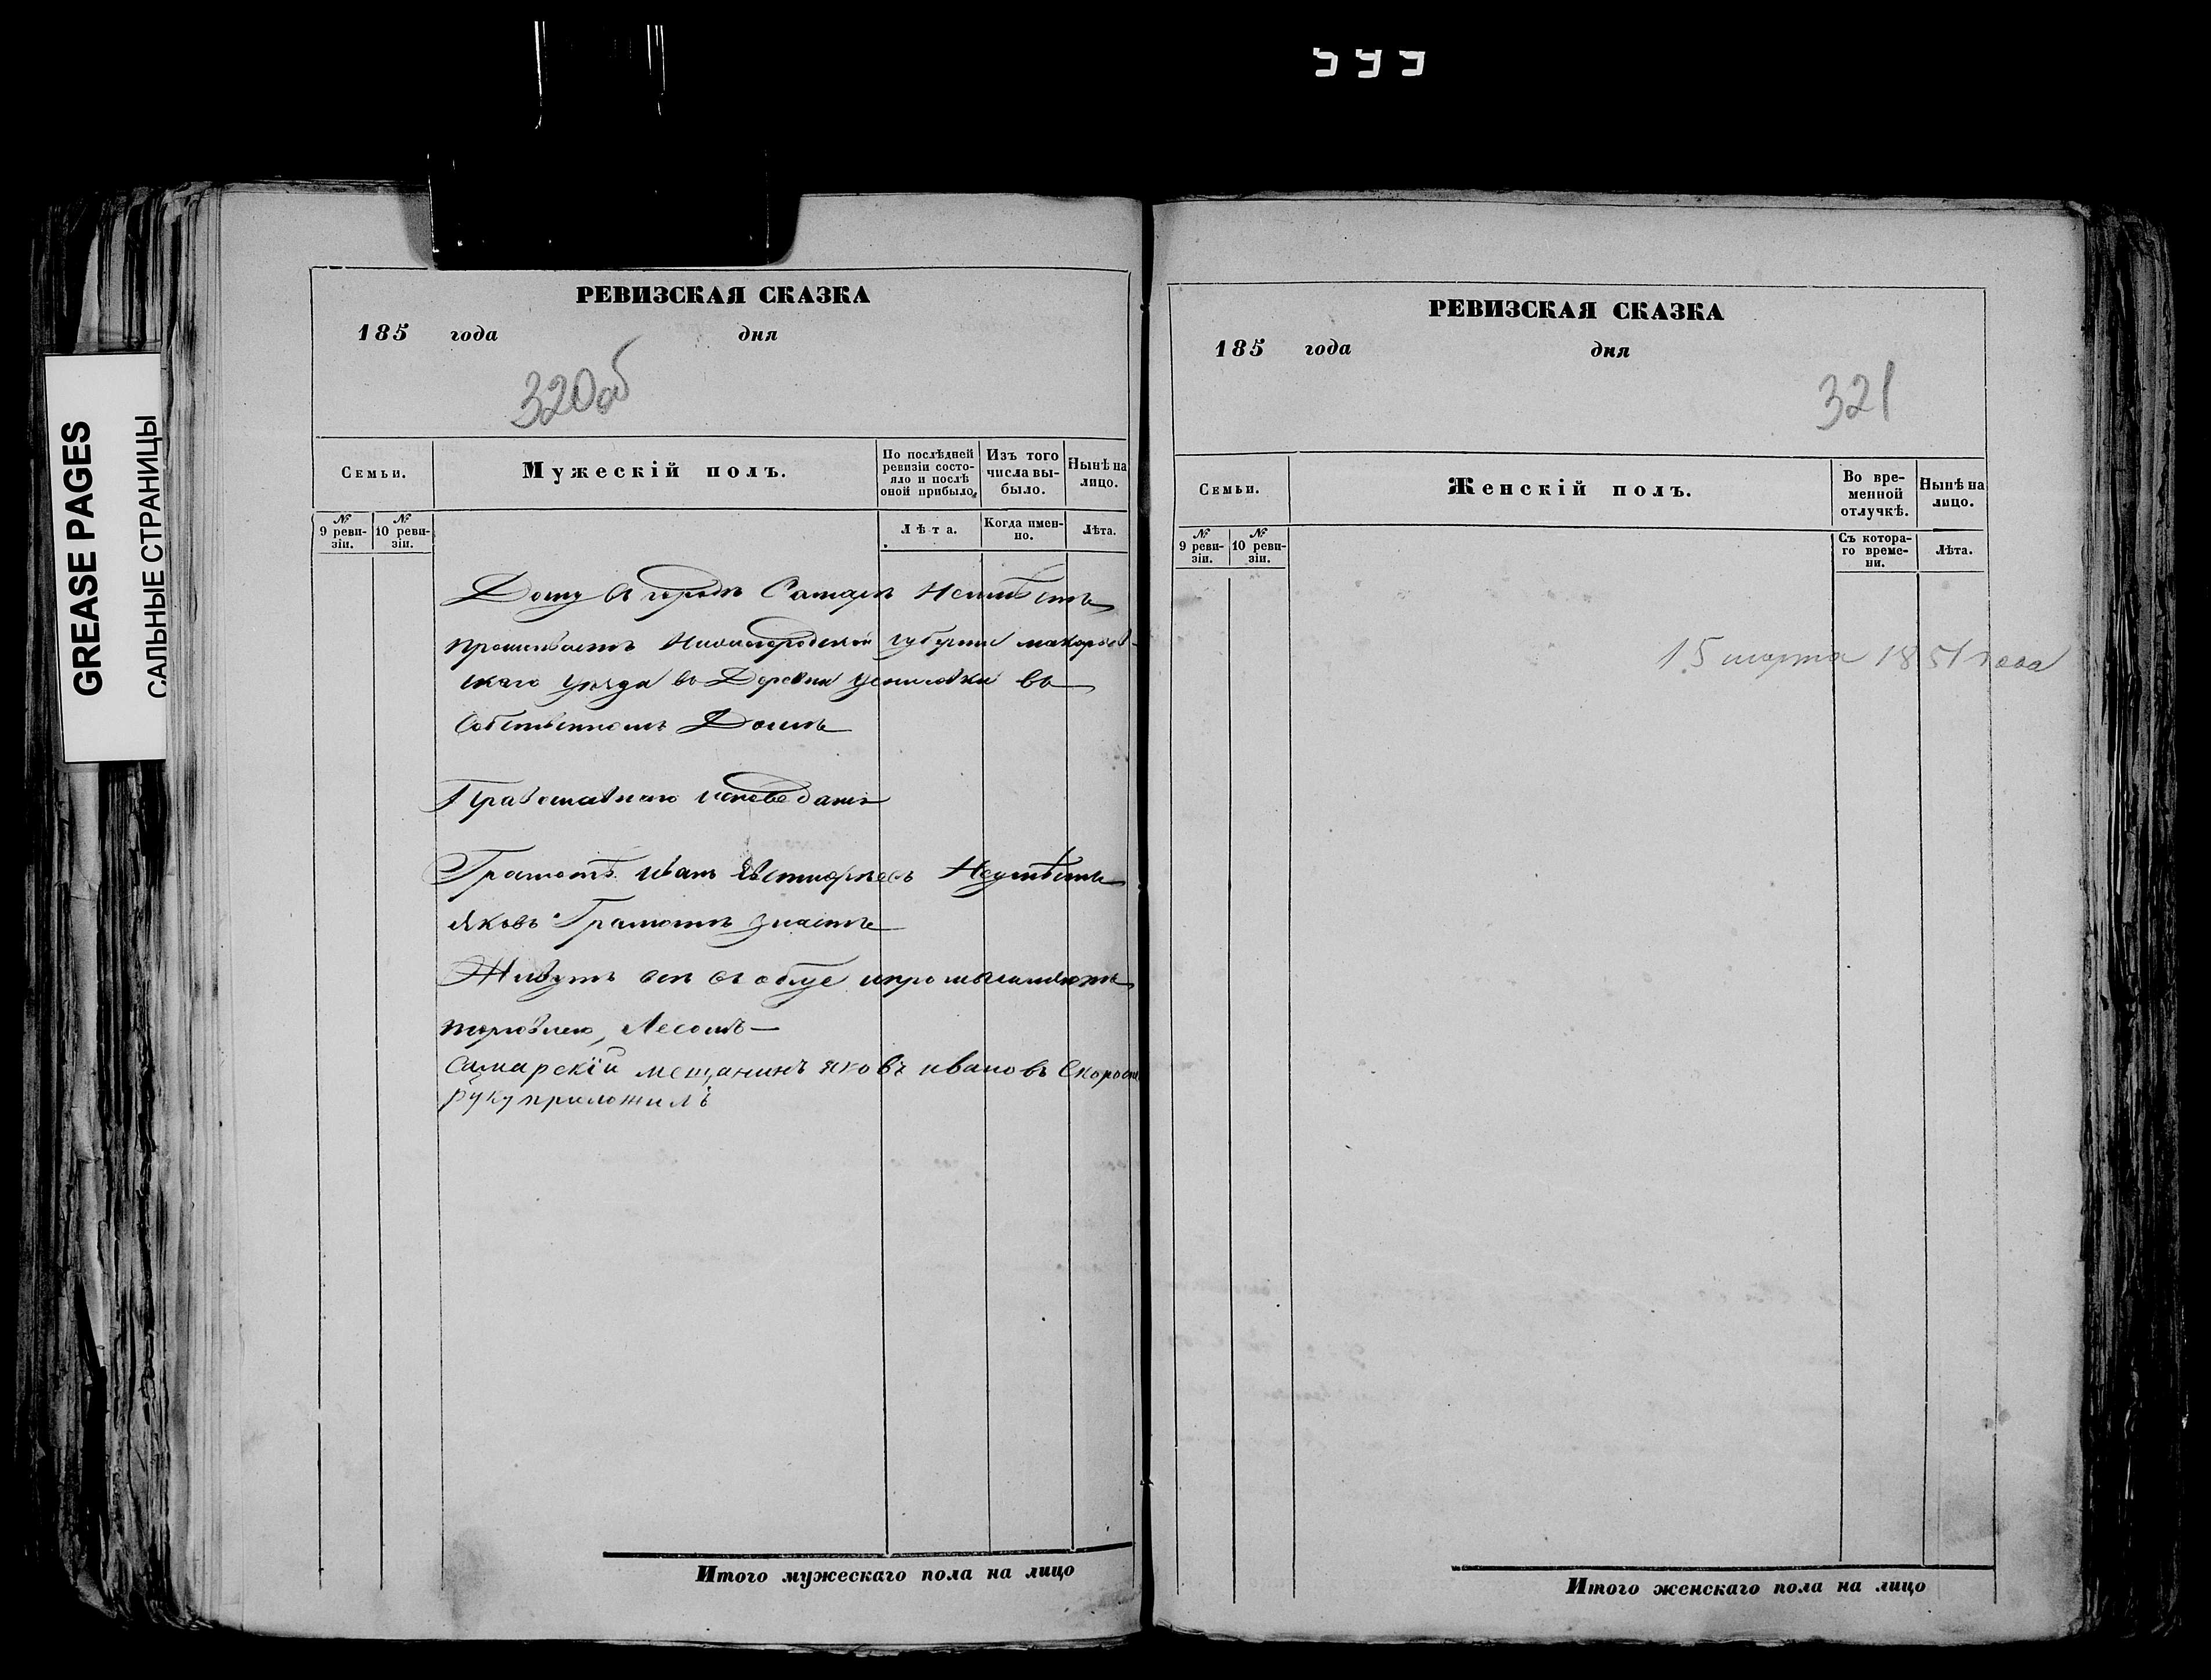 GREASE PAGES
САЛЬНЫЕ СТРАНИЦЫ
РЕВИЗСКАЯ СКАЗКА
185 года дня
320об
Семьи.
Мужескій полъ.
По послѣдней ревизіи состояло и послѣ оной прибыло.
Изъ того числа выбыло.
Нынѣ на лицо.
№ 9 ревизіи.
№ 10 ревизіи.
Лѣта.
Когда именно.
Лѣта.
Дому въ городѣ Самарѣ Неимѣетъ
проживаетъ Нижегородской губерніи макарьев-
скаго уезда въ Деревни въ
Собственномъ Домѣ
Православнаго исповеданія
Грамотѣ иванъ Неумѣетъ
яковъ Грамотѣ знаетъ
Живутъ всѣ въ обще ипромышляютъ
торговлею Лесомъ —
самарскій мещанинъ яковъ ивановъ
руку приложилъ
Итого мужескаго пола на лицо
РЕВИЗСКАЯ СКАЗКА
185 года дня
321
Семьи.
Женскій полъ.
Во временной отлучкѣ.
Нынѣ на лицо.
№ 9 ревизіи.
№ 10 ревизіи.
Съ котораго времени.
Лѣта.
15 марта 1851 года
Итого женскаго пола на лицо